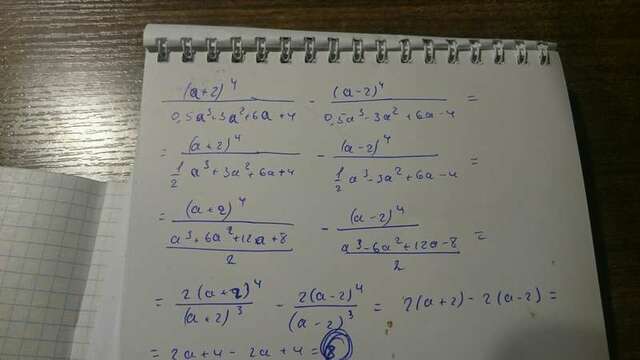 (a+2)^4 / (0,5a^3+3a^2+6a+4) - (a-2)^4 / (0,5a^3-3a^2+6a-4) =
= (a+2)^4 / (1/2 a^3+3a^2+6a+4) - (a-2)^4 / (1/2 a^3-3a^2+6a-4) =
= (a+2)^4 / ((a^3+6a^2+12a+8)/2) - (a-2)^4 / ((a^3-6a^2+12a-8)/2) =
= 2(a+2)^4 / (a+2)^3 - 2(a-2)^4 / (a-2)^3 = 2(a+2)-2(a-2) =
= 2a+4-2a+4=8